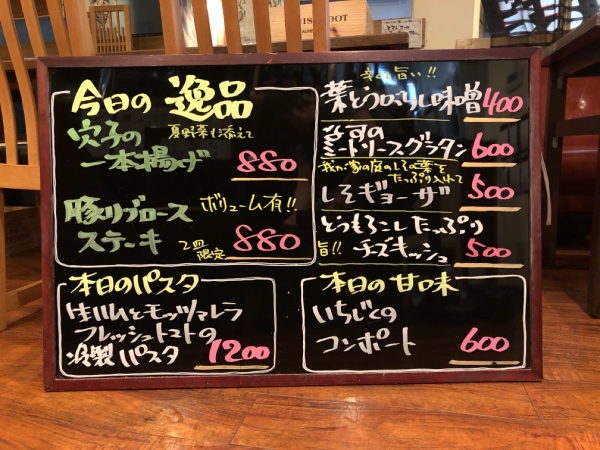 今日の 逸品
穴子の 夏野菜も添えて
一本揚げ 880
豚リブロース ボリューム有!!
ステーキ 2皿限定 880
辛くて旨い!!
葉とうがらし味噌 400
なすの
ミートソースグラタン 600
我が家の庭のしその葉を
たっぷり入れて
しそギョーザ 500
とうもろこしたっぷり
旨!! チーズキッシュ 500
本日のパスタ
生ハムとモッツァレラ
フレッシュトマトの
冷製パスタ 1200
本日の甘味
いちじくの
コンポート 600